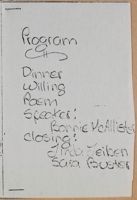 Program
Dinner
Willing
Poem
Speaker:
Bonnie McAllister
Closing:
Linda Zeiben
Sara Buster